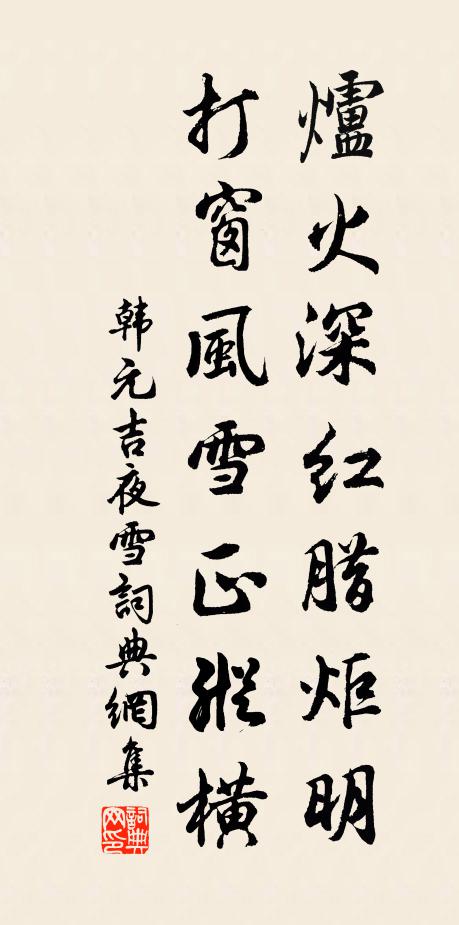 爐火深红腊炬明
打窗風雪正縱橫
韩元吉夜雪詞典網集
詞典網印